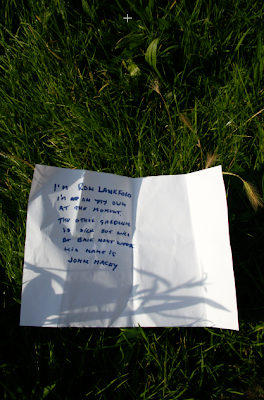 I'M RON LANKFORD
I'M ON MY OWN
AT THE MOMENT
THE OTHER
IS SICK BUT WILL
BE BACK NEXT WEEK
HIS NAME IS
JOHN MACEY